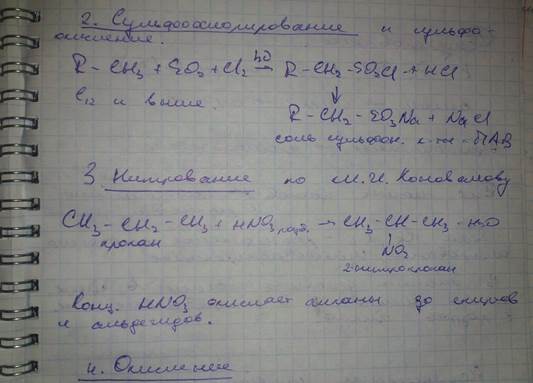 2. Сульфохлорирование и сульфо-
окисление.
R – CH3 + SO2 + Cl2 →hν R – CH2 – SO2Cl + HCl
C12 и выше. ↓
R – CH2 – SO3Na + NaCl
соль сульфон. к-ты – ПАВ
3. Нитрование по М.И. Коновалову
CH3 – CH2 – CH3 + HNO3 разб. → CH3 – CH – CH3 H2O
пропан NO2
2-нитропропан
Конц. HNO3 окисляет алканы до спиртов
и альдегидов.
4. Окисление